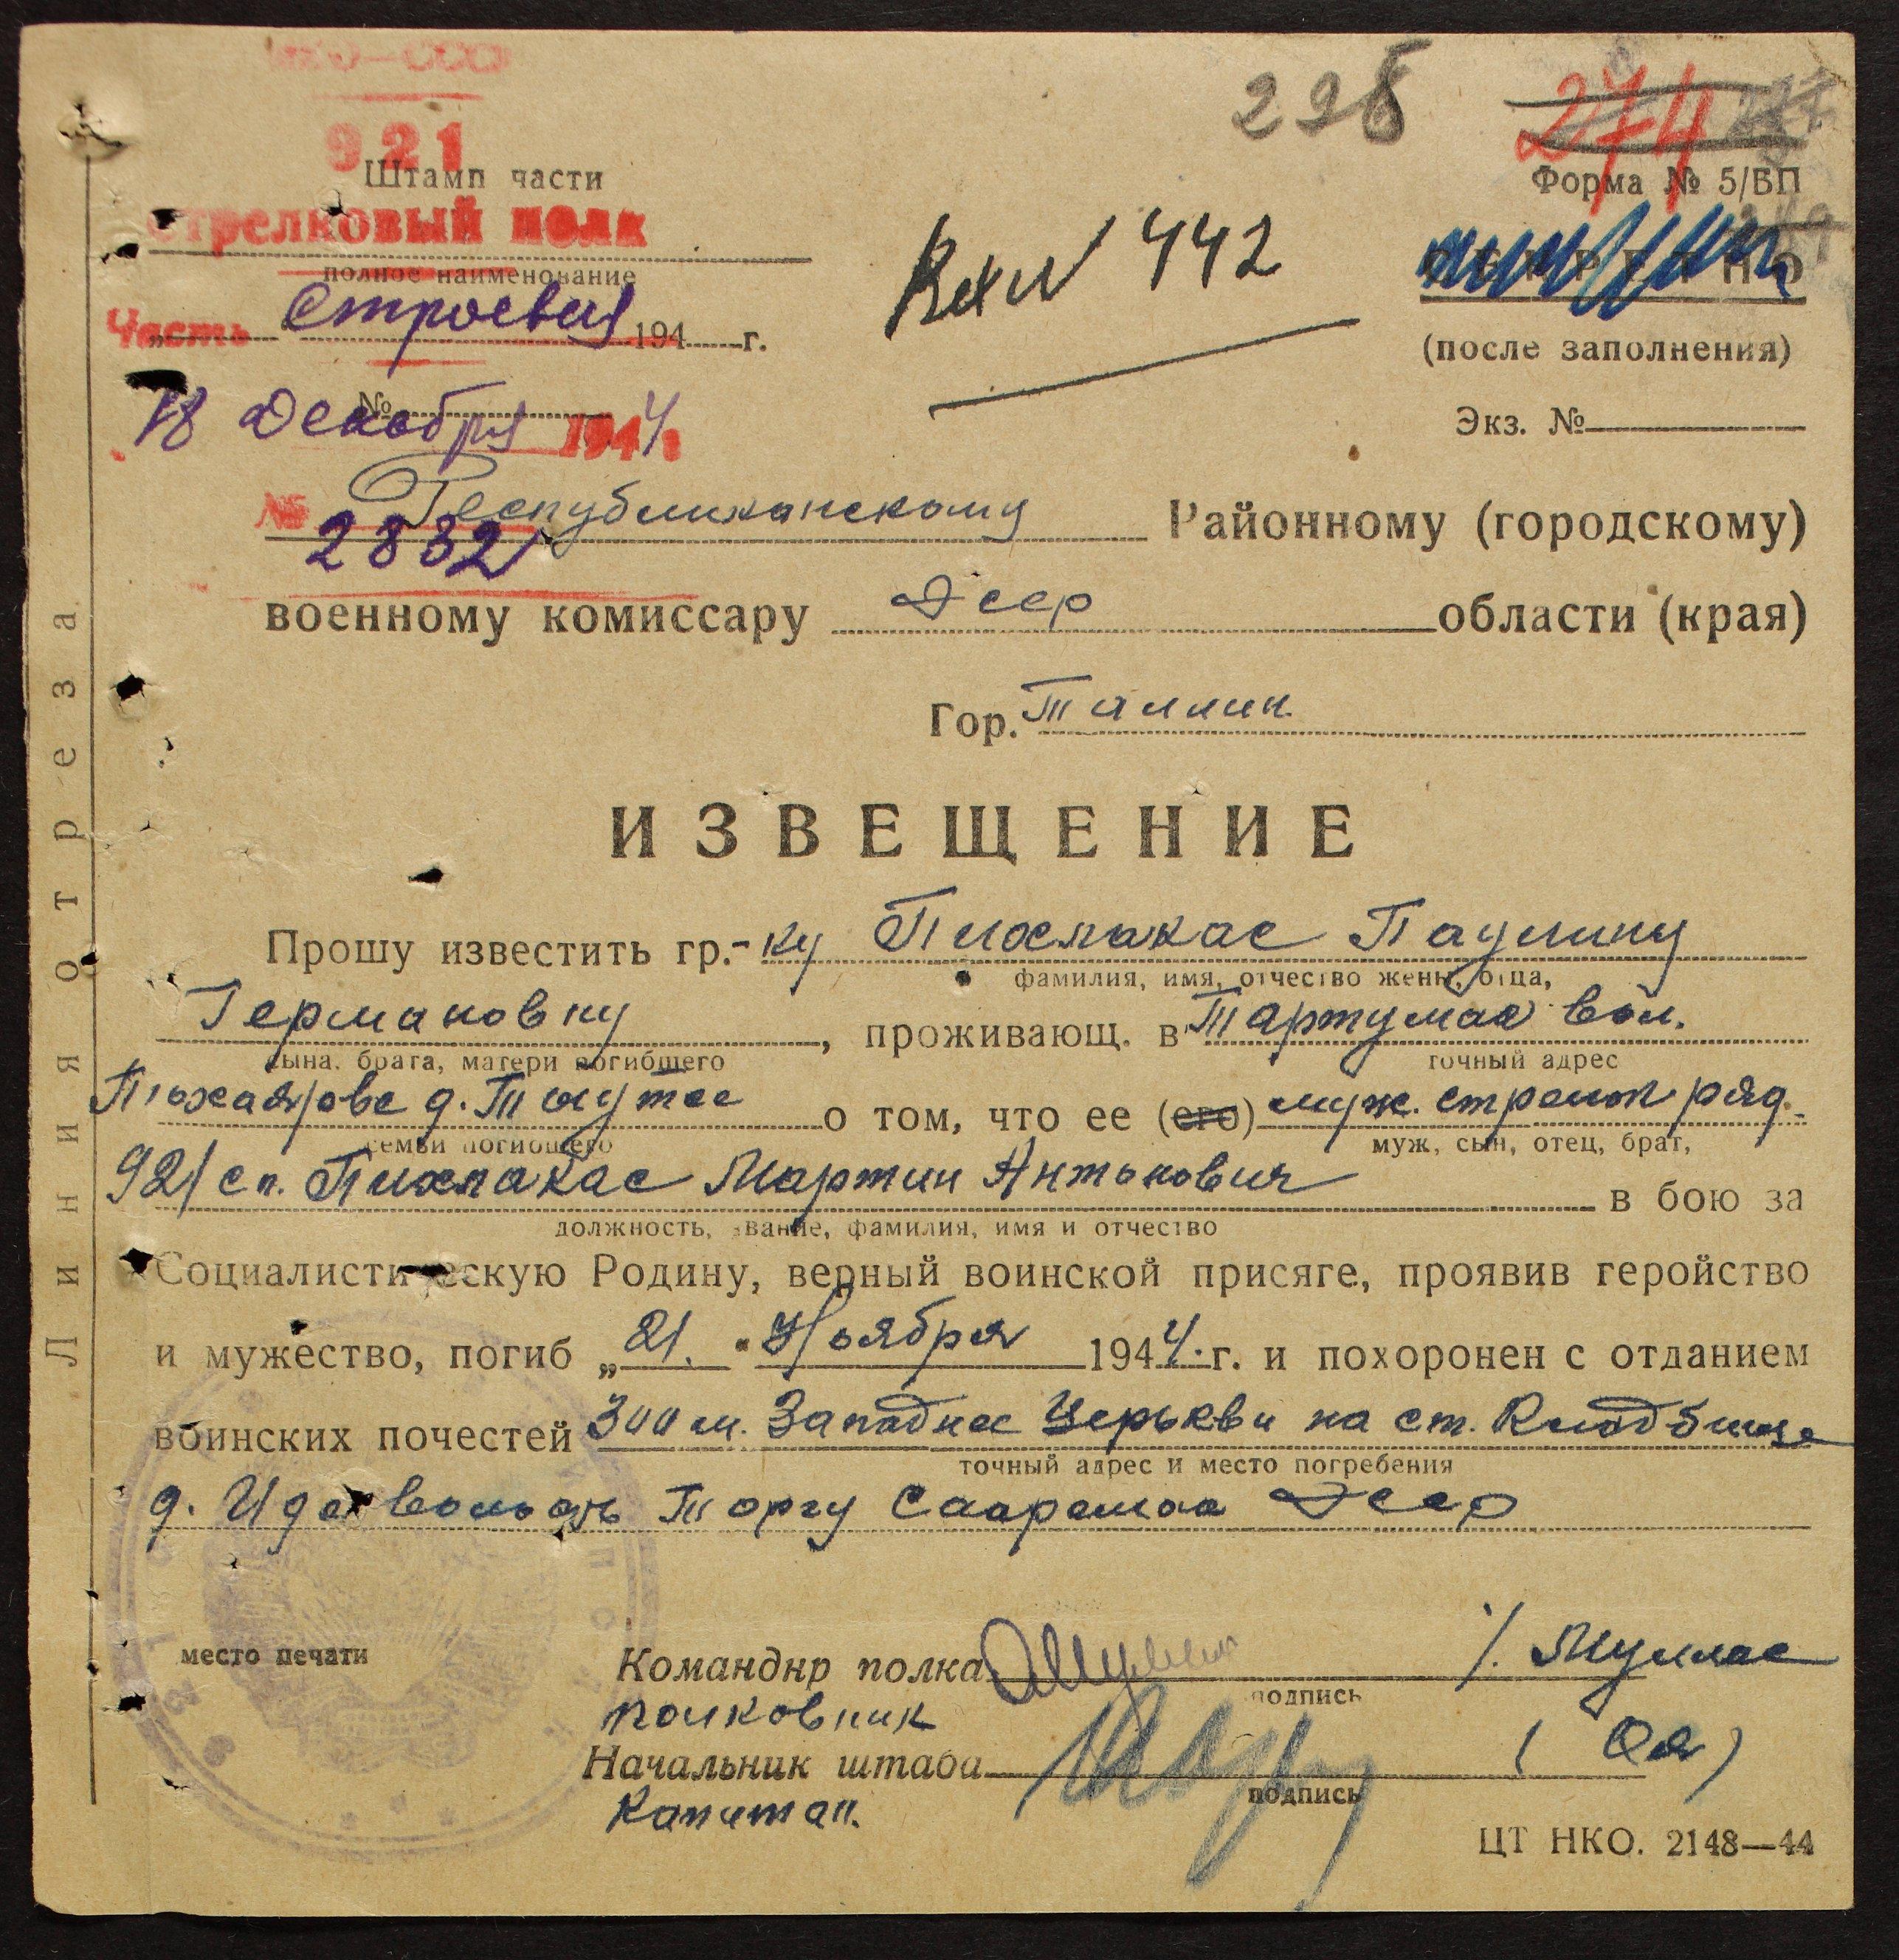 НКО—СССР
921
Штамп части
стрелковый полк
полное наименование
Часть Строевая 194 г.
№
18 Декабря 1944
№ 2882
228
274
Форма № 5/БП
Вх № 442
СЕКРЕТНО
(после заполнения)
Экз. №
Республиканскому Районному (городскому)
военному комиссару Эсср области (края)
Гор. Таллин.
ИЗВЕЩЕНИЕ
Прошу известить гр.-ку Пихлакас Паулину
фамилия, имя, отчество жены, отца,
Германовну, проживающ. в Тартумаа вол.
сына, брага, матери погибшего
точный адрес
д. о том, что ее (его) муж. стрелок ряд.
семьи погибшего
муж, сын, отец, брат,
921 сп. Пихлакас Мартин Антонович в бою за
должность, звание, фамилия, имя и отчество
Социалистическую Родину, верный воинской присяге, проявив геройство
и мужество, погиб „21." Ноября 1944. г. и похоронен с отданием
воинских почестей 300 м. Западнее Церькви на ст. Кладбище
точный адрес и место погребения
д. Иде волость Торгу Сааремаа Эсср
место печати
Командир полка / Муллас
подпись
полковник
Начальник штаба ( Оя )
подпись
Капитан.
ЦТ НКО. 2148—44
Линия отреза